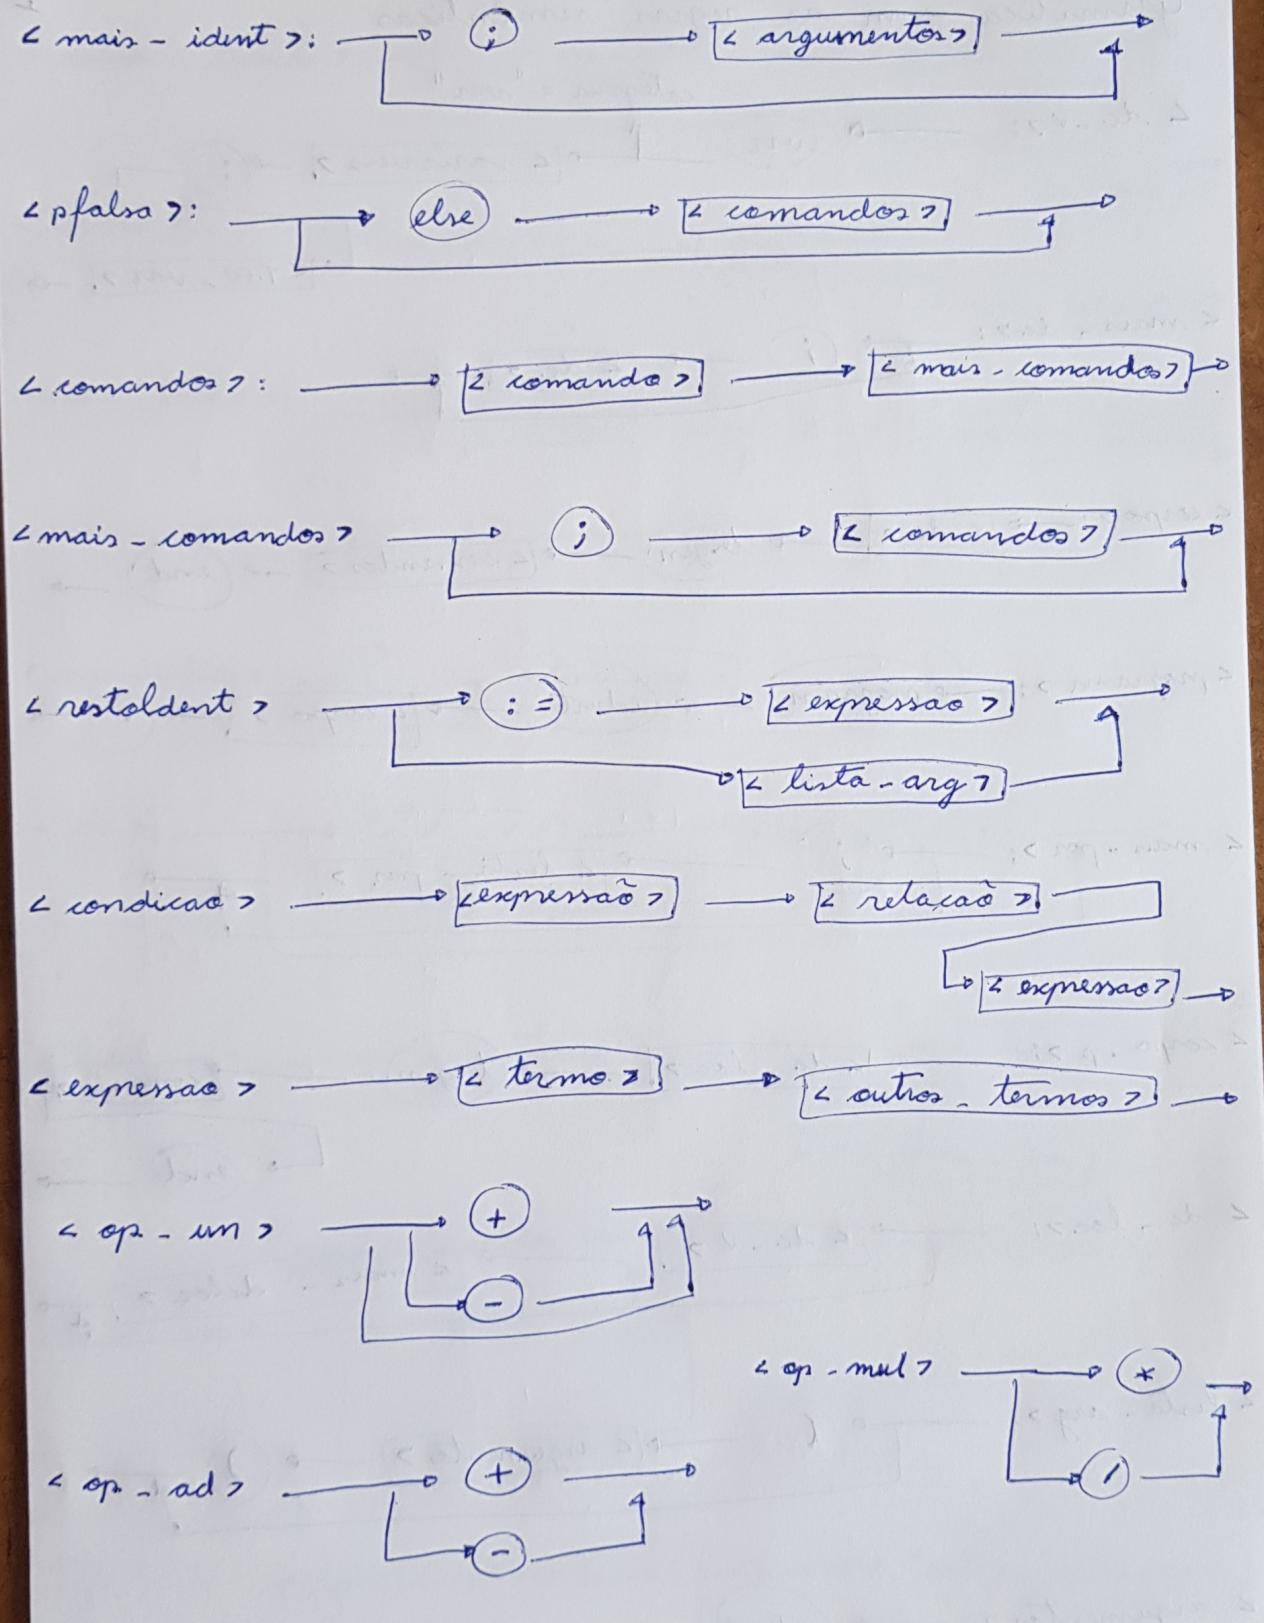 < mais - ident >: ; < argumentos >
< pfalsa >: else < comandos >
< comandos >: < comando > < mais - comandos >
< mais - comandos > ; < comandos >
< restoIdent > := < expressao >
< lista - arg >
< condicao > < expressão > < relacaõ >
< expressao >
< expressao > < termo > < outros - termos >
< op - un > +
-
< op - mul > *
/
< op - ad > +
-